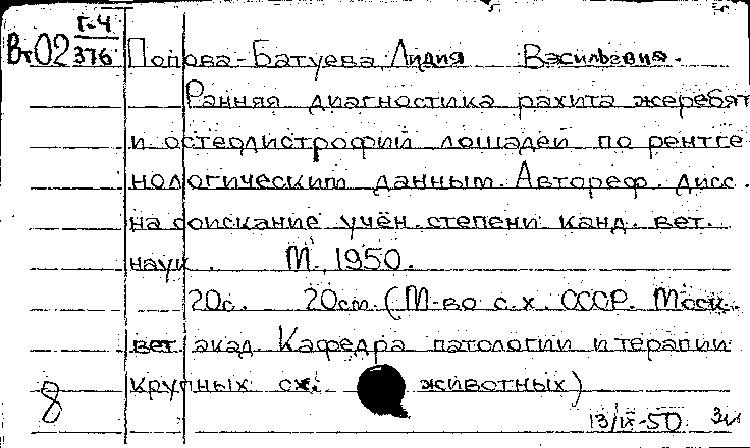 Г-4
Вт02 376 Попова-Батуева, Лидия Васильевна.
Ранняя диагностика рахита жеребят
и остеодистрофий лошадей по рентге
нологическим данным. Автореф. дисс.
на соискание учён. степени канд. вет.
наук. М., 1950.
20с. 20см. (М-во с.х. СССР. Моск.
вет. акад. Кафедра патологии и терапии
крупных сх. животных)
8
13/IX-50